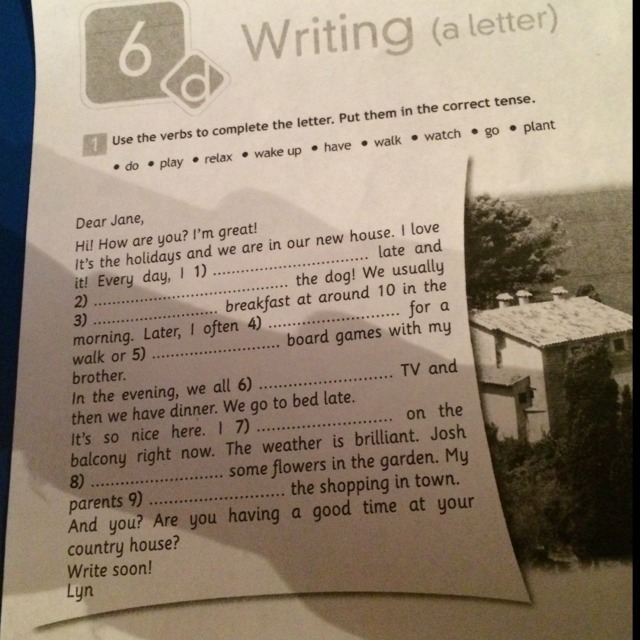 6
d
Writing (a letter)
1 Use the verbs to complete the letter. Put them in the correct tense.
• do • play • relax • wake up • have • walk • watch • go • plant
Dear Jane,
Hi! How are you? I'm great!
It's the holidays and we are in our new house. I love
it! Every day, I 1) .................................... late and
2) ............................................ the dog! We usually
3) ............................ breakfast at around 10 in the
morning. Later, I often 4) ............................ for a
walk or 5) ............................ board games with my
brother.
In the evening, we all 6) ............................ TV and
then we have dinner. We go to bed late.
It's so nice here. I 7) ............................ on the
balcony right now. The weather is brilliant. Josh
8) ............................ some flowers in the garden. My
parents 9) ............................ the shopping in town.
And you? Are you having a good time at your
country house?
Write soon!
Lyn